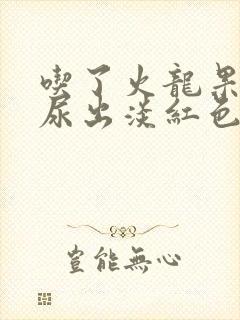 喫了火龍果
尿出淡紅色
豈能無心